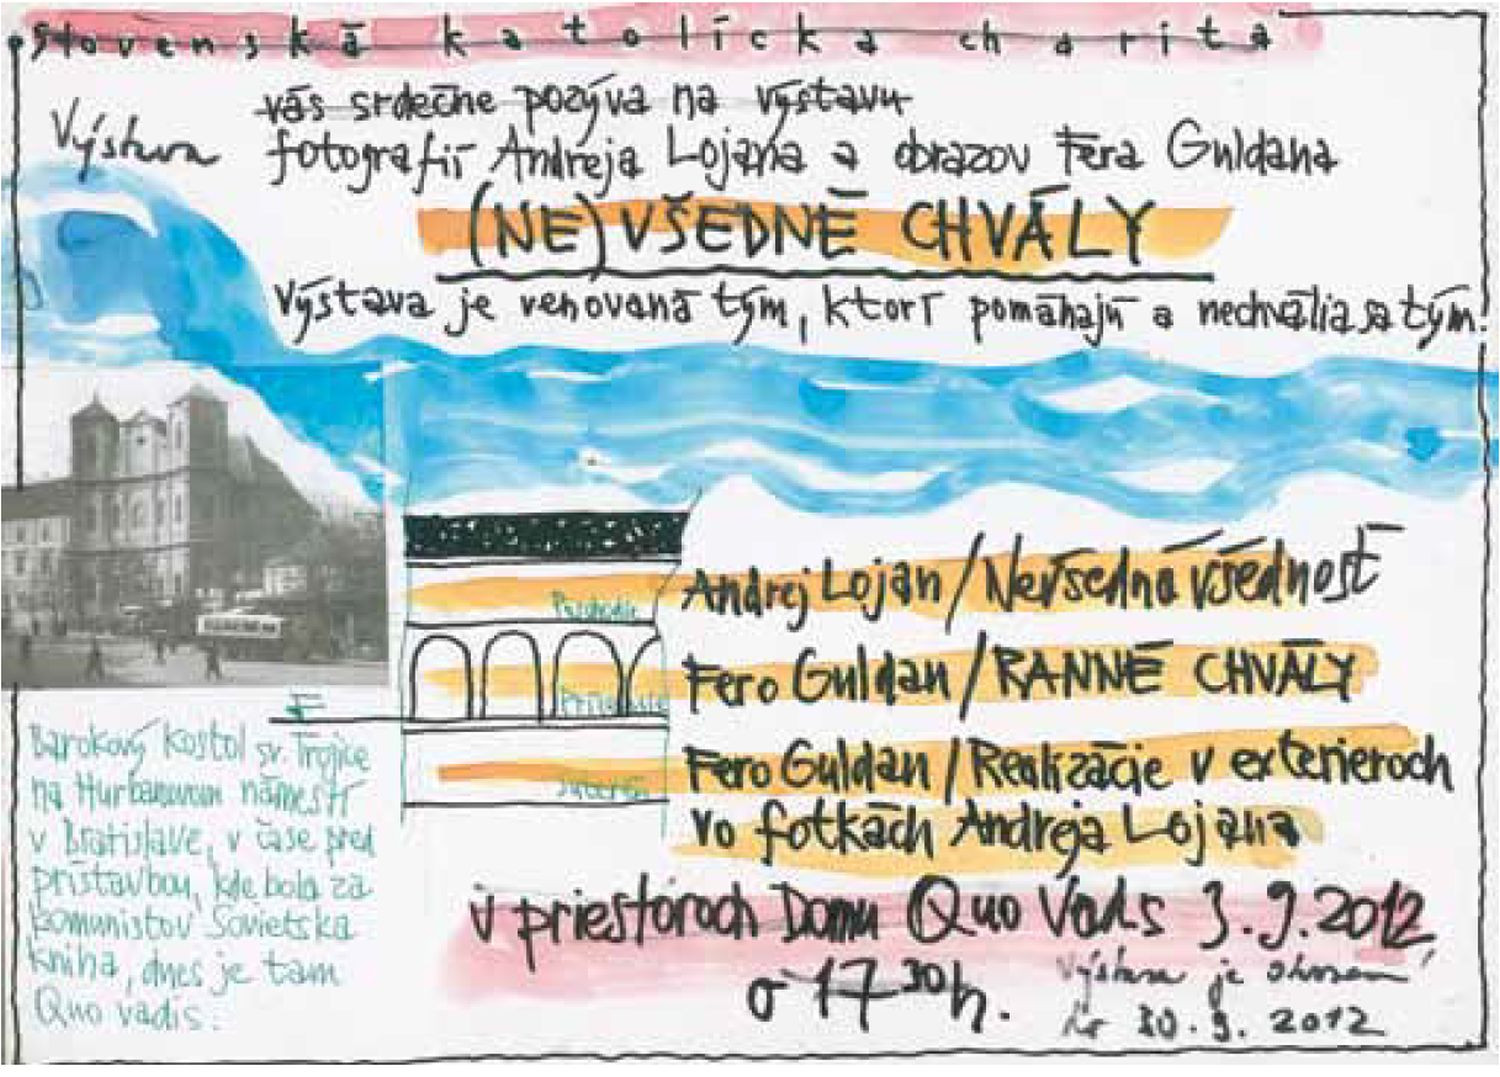 slovenská katolícka charita
vás srdečne pozýva na výstavu
Výstava
fotografií Andreja Lojana a obrazov Fera Guldana
(NE)VŠEDNÉ CHVÁLY
Výstava je venovaná tým, ktorí pomáhajú a nechvália sa tým!
Andrej Lojan/Nevšedná všédnosť
Prízemie
Fero Guldan/RANNÉ CHVÁLY
Fero Guldan/Realizácie v exterieroch
vo fotkách Andreja Lojana
Barokový kostol sv. Trojice
na Hurbanovom námestí
v Bratislave, v čase pred
prístavbou, kde bola za
komunistov Sovietska
kniha, dnes je tam
Quo vadis.
v priestoroch Domu Quo Vadis 3.9.2012
o 17 30 h.
Výstava je otvorená
do 30.9.2012